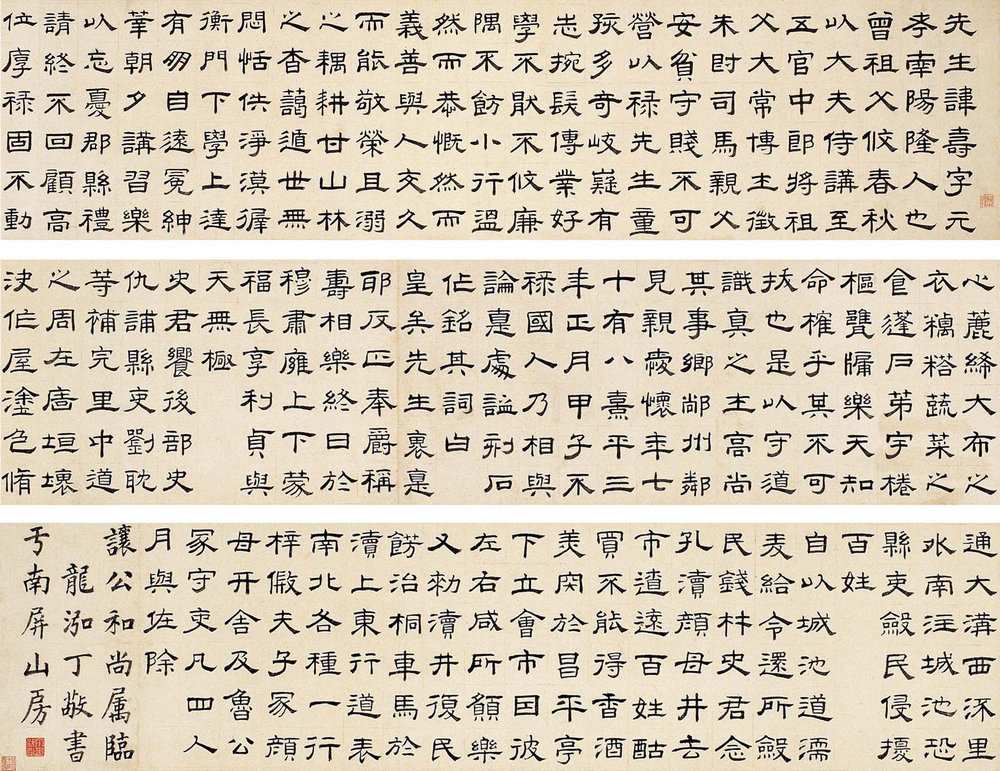 先生諱壽字元
孝南陽隆人也
曾祖父攸春秋
以大夫侍講至
五官中郎將祖
父大常博士徵
朱爵司馬親父
安貧守賤不可
營以祿先生童
孩多奇岐嶷有
志捥髮傳業好
學不猒不攸廉
隅不飭小行溫
然而恭慨然而
義善與人交久
而能敬榮且溺
之耦耕甘山林
之杳藹遁世無
悶恬佚淨漠徲
衡門下學上達
有朋自遠冕紳
莘朝夕講習樂
以忘憂郡縣禮
請終不回顧高
位厚祿固不動
心麤絺大布之
衣糲荅蔬菜之
食蓬戶茅宇棬
樞甕牖樂天知
命榷乎其不可
拔也是以守道
識真之士高尚
其事鄉州鄰
見親愛懷年七
十有八熹平三
年正月甲子不
祿國人乃相與
論悳處謚刻石
作銘其詞曰
皇矣先生褱悳
耶反正奉爵稱
壽相樂終日於
穆肅雍上下蒙
福長享利貞與
天無極
史君饗後部史
仇誧縣吏劉耽
等補完里中道
之周左廧垣壞
決作屋塗色脩
通大溝西流里
水南注城池恐
縣吏斂民侵擾
百姓
自以城池道濡
麦給令還所斂
民錢材史君念
孔瀆顏母井去
市遼遠百姓酤
買不能得香酒
美肉於昌平亭
下立會市因彼
左右咸所願樂
又勑瀆井復民
餝治桐車馬於
瀆上東行道表
南北各種一行
梓假夫子冢顏
母开舍及魯公
冢守吏凡四人
月與佐除
讓公和尚属臨
龍泓丁敬書
于南屏山房